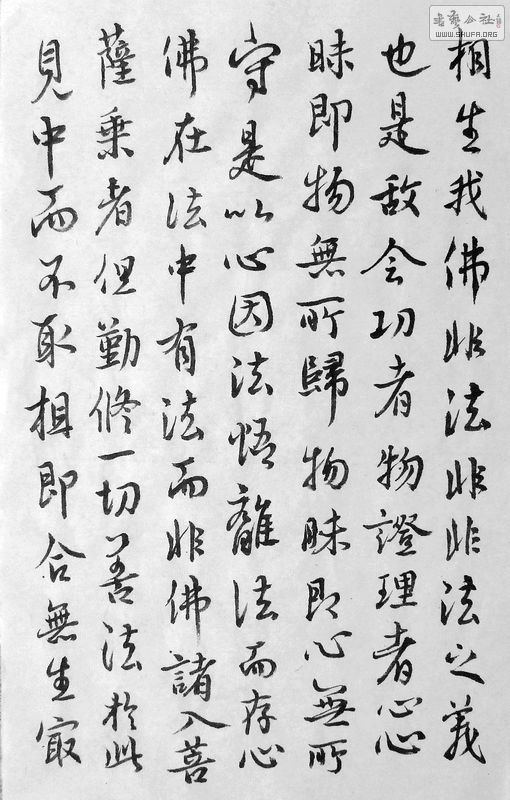 書藝公社
WWW.SHUFA.ORG
相生我佛非法非非法之義
也是故会功者物證理者心心
昧即物無所歸物昧即心無所
守是以心因法悟離法而存心
佛在法中有法而非佛諸入菩
薩乗者但勤修一切善法於此
見中而不取相即合無生㝡